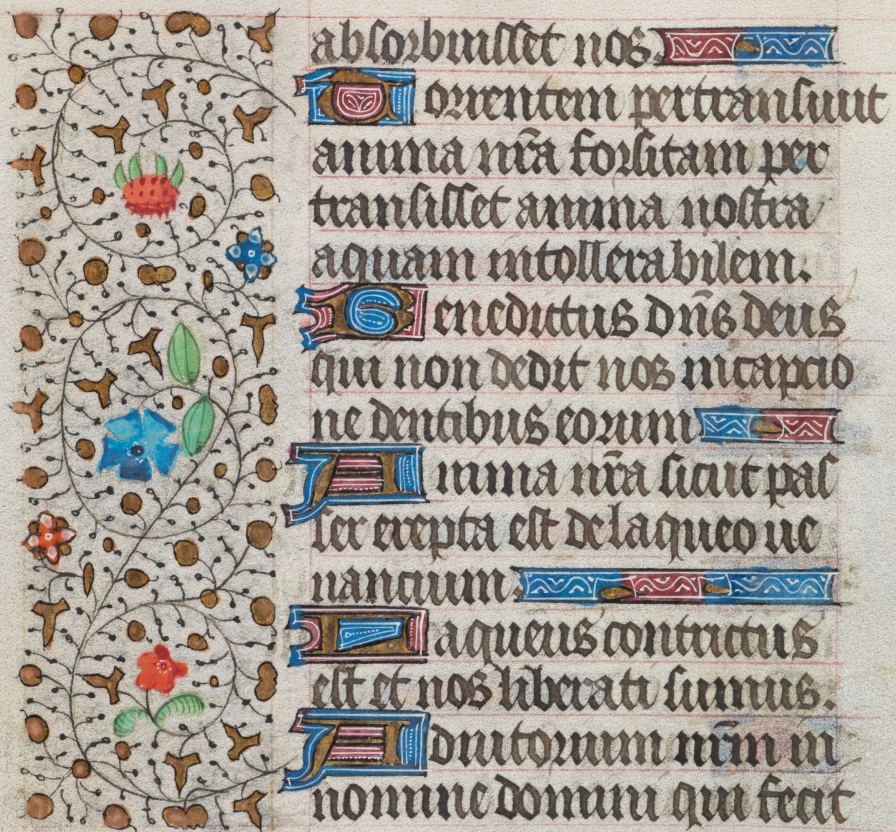 absorbuisset nos.
Torrentem pertransiuit
anima nr̄a forsitam per
transisset anima nostra
aquam intollerabilem.
Benedictus dn̄s deus
qui non dedit nos in capcio
ne dentibus eorum
Anima nr̄a sicut pas
ser erepta est de laqueo ue
nancium.
Laqueus contritus
est et nos liberati sumus.
Adiutorium nr̄m in
nomine domini qui fecit